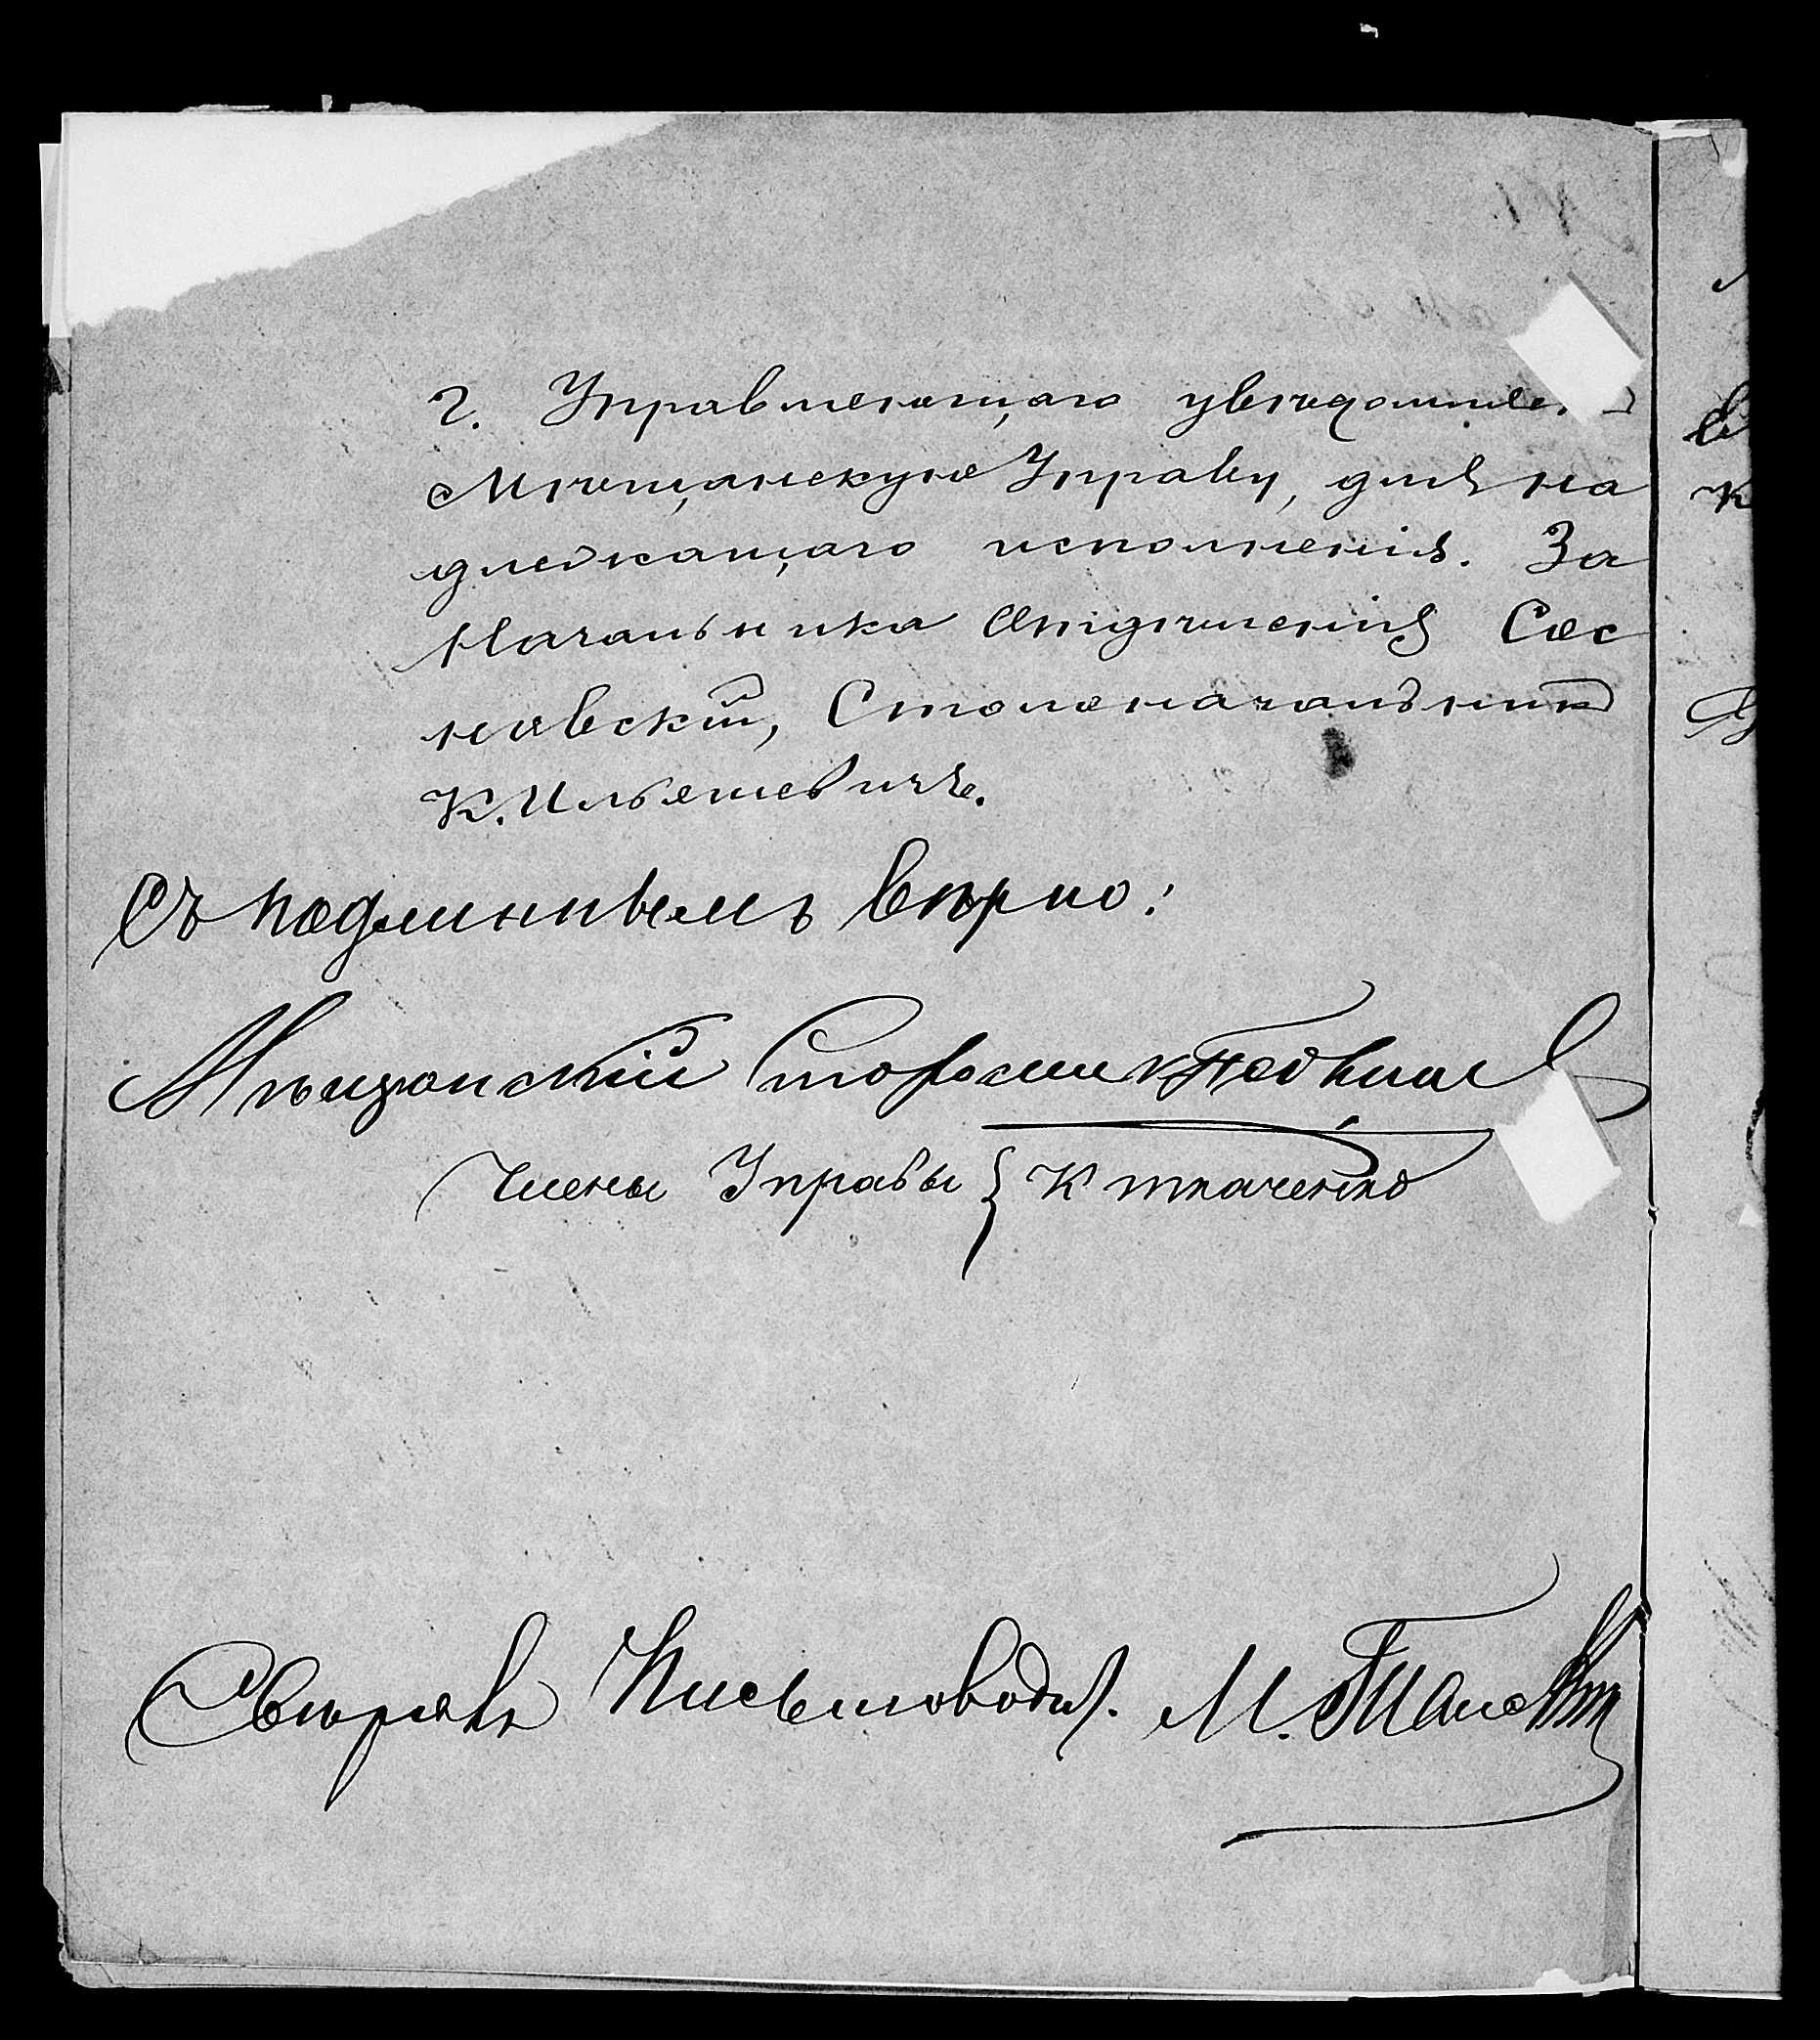 г. Управляющаго увѣдомляетъ
Мѣщанскую Управу, для на
длежащаго исполненія. За
Начальника Отдѣленія Сос
новскій, Столоначальникъ
К. Ильяшевичъ.
Съ подлиннымъ вѣрно:
Мѣщанскій Староста
Члены Управы { К Ткаченко
Свѣрялъ Письмовод. М.